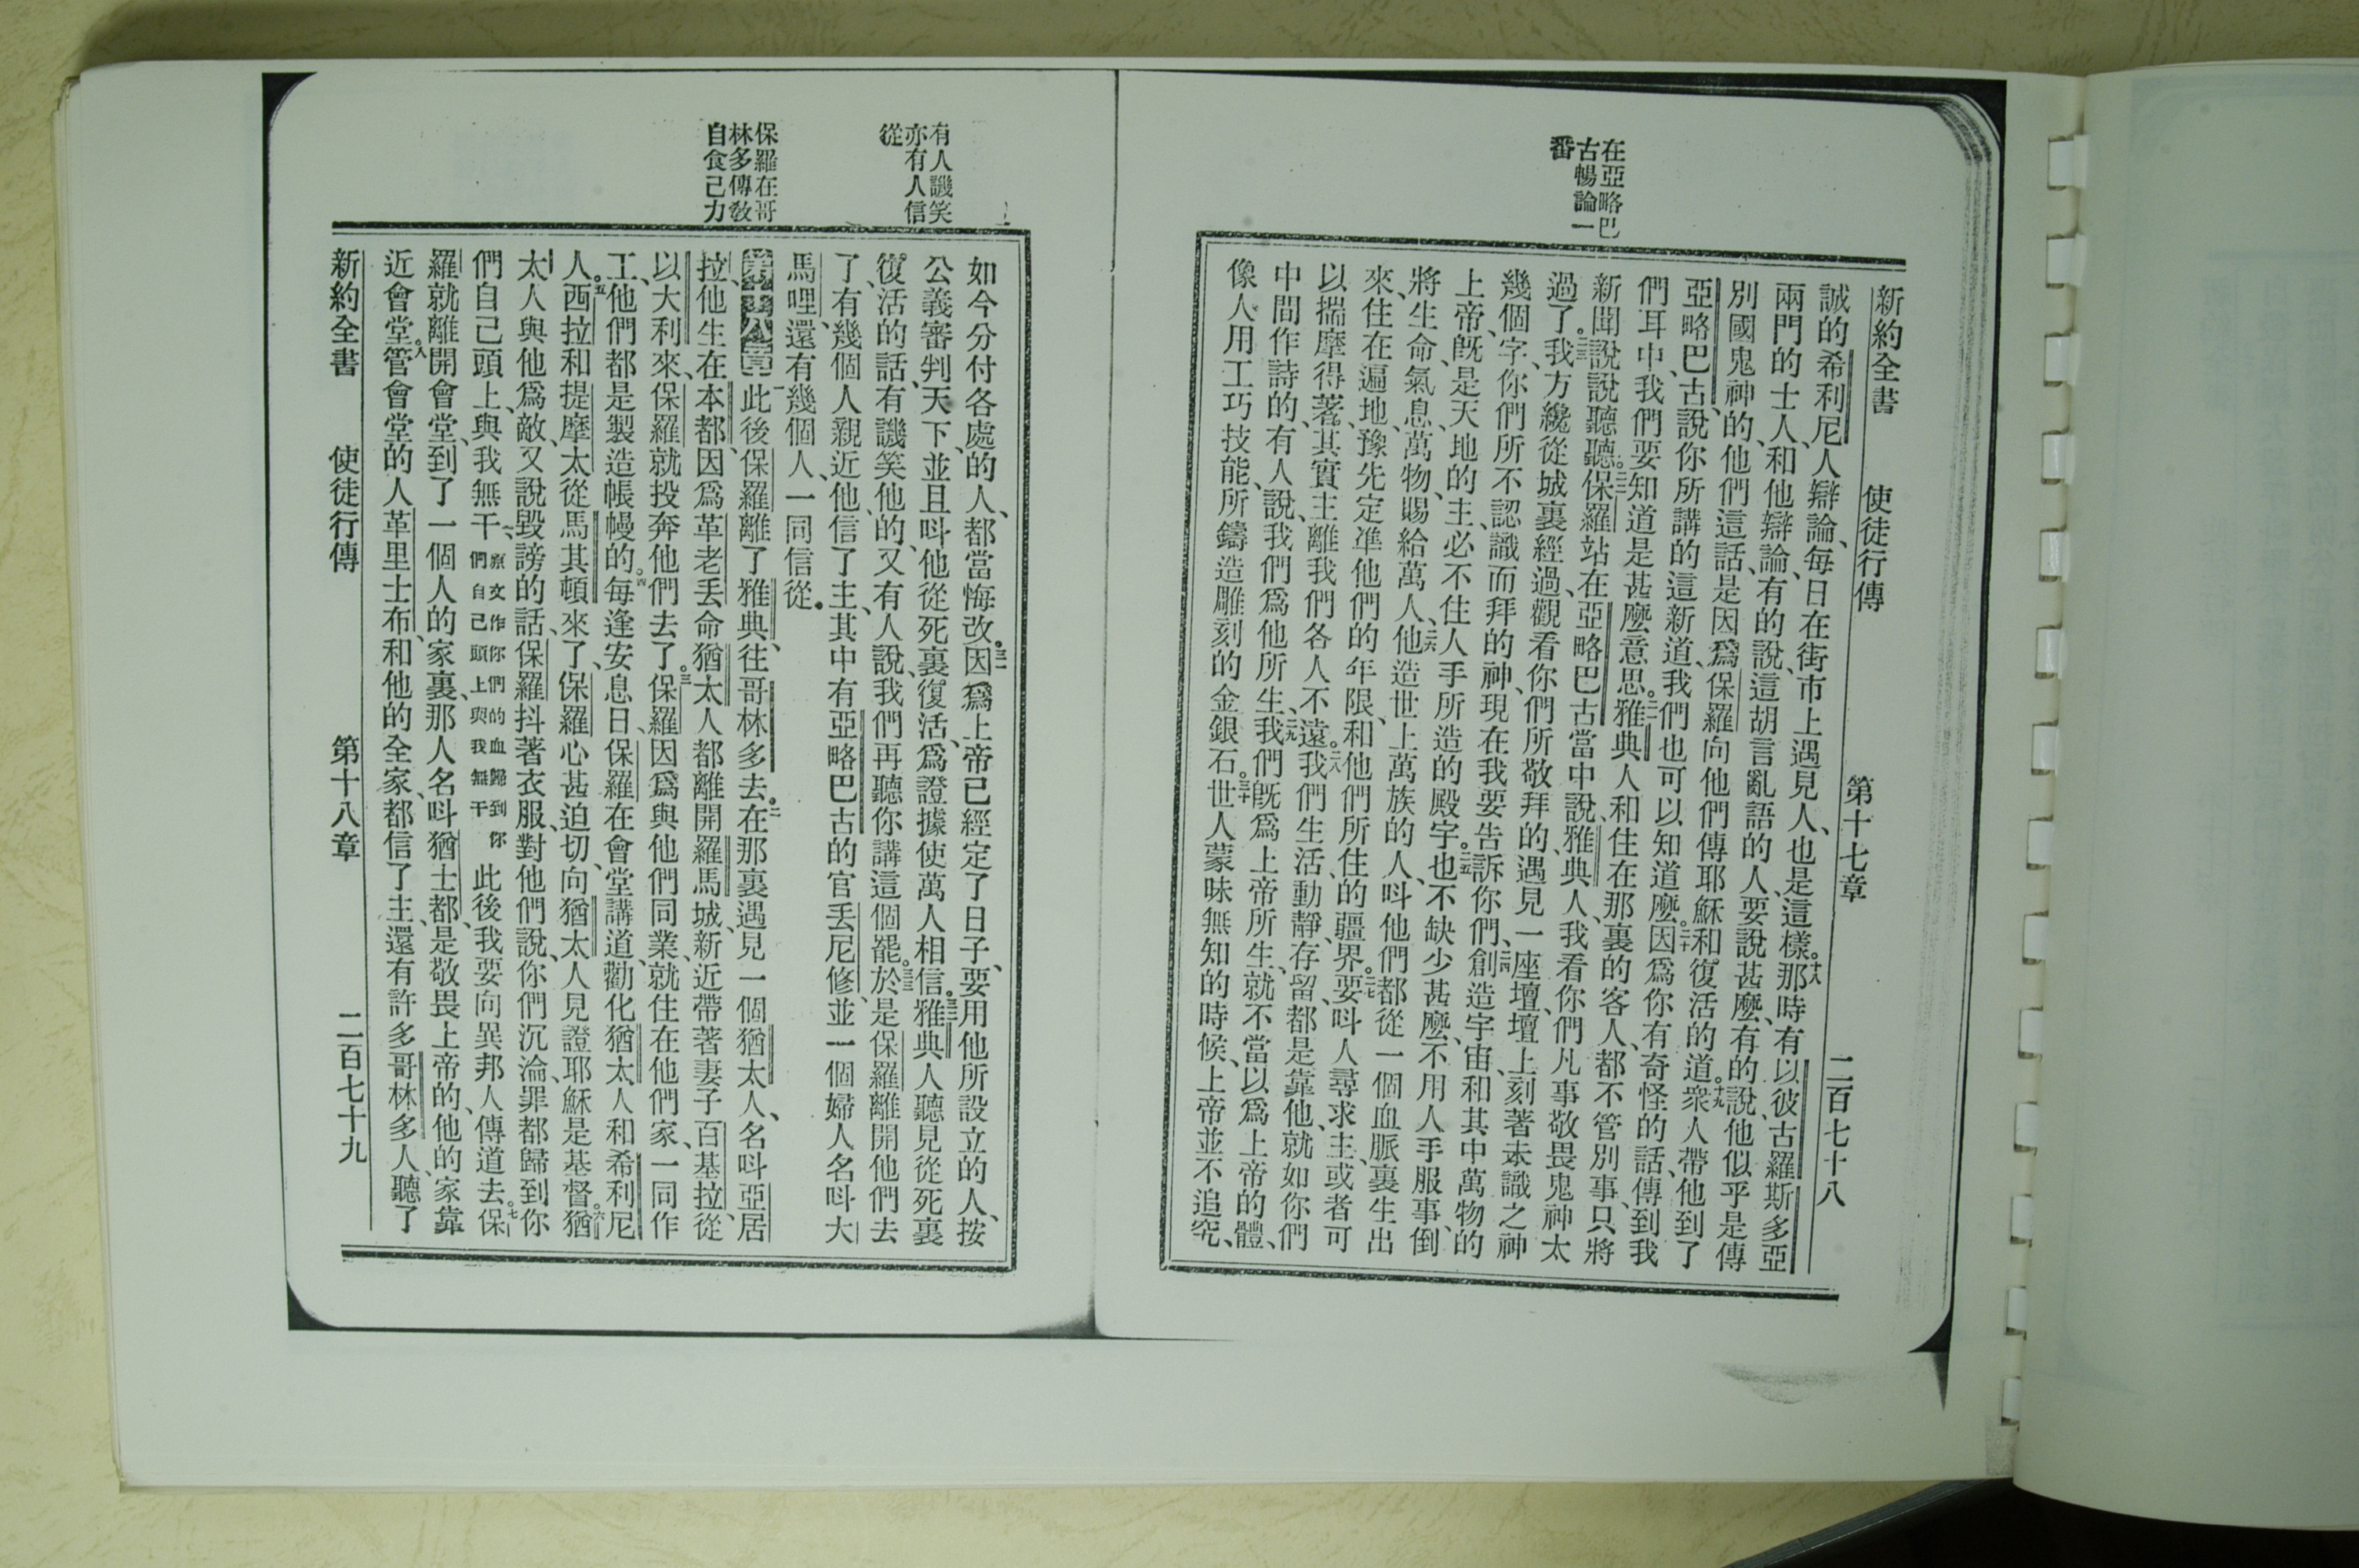 在亞略巴
古暢論一
番
新約全書 使徒行傳 第十七章 二百七十八
誠的希利尼人辯論、每日在街市上遇見人、也是這樣。十八那時有以彼古羅斯多亞
兩門的士人、和他辯論、有的說、這胡言亂語的人、要說甚麼、有的說、他似乎是傳
別國鬼神的、他們這話、是因爲保羅向他們傳耶穌和復活的道。十九衆人帶他到了
亞略巴古、說、你所講的這新道、我們也可以知道麼。二十因爲你有奇怪的話、傳到我
們耳中、我們要知道是甚麼意思。二一雅典人和住在那裏的客人、都不管別事、只將
新聞說說聽聽。二二保羅站在亞略巴古當中說、雅典人、我看你們凡事敬畏鬼神太
過了。二三我方纔從城裏經過、觀看你們所敬拜的、遇見一座壇、壇上刻著未識之神
幾個字、你們所不認識而拜的神、現在我要告訴你們、二四創造宇宙、和其中萬物的
上帝、旣是天地的主、必不住人手所造的殿宇。二五也不缺少甚麼、不用人手服事、倒
將生命、氣息、萬物、賜給萬人、二六他造世上萬族的人、呌他們都從一個血脈裏生出
來、住在遍地、豫先定準他們的年限、和他們所住的疆界。二七要呌人尋求主、或者可
以揣摩得著、其實主離我們各人不遠。二八我們生活、動靜、存留、都是靠他、就如你們
中間作詩的、有人說、我們爲他所生、二九我們旣爲上帝所生、就不當以爲上帝的體、
像人用工巧技能、所鑄造雕刻的金銀石。三十世人蒙昧無知的時候、上帝並不追究、
有人譏笑
亦有人信
從
保羅在哥
林多傳敎
自食己力
如今分付各處的人、都當悔改。三一因爲上帝已經定了日子、要用他所設立的人、按
公義審判天下、並且呌他從死裏復活、爲證據使萬人相信。三二雅典人聽見從死裏
復活的話、有譏笑他的、又有人說、我們再聽你講這個罷。三三於是保羅離開他們去
了、有幾個人親近他、信了主、其中有亞略巴古的官丟尼修、並一個婦人名呌大
馬哩、還有幾個人、一同信從。
第十八章 一此後保羅離了雅典、往哥林多去。二在那裏遇見一個猶太人、名呌亞居
拉、他生在本都、因爲革老丟命猶太人都離開羅馬城、新近帶著妻子百基拉、從
以大利來、保羅就投奔他們去了。三保羅因爲與他們同業、就住在他們家、一同作
工、他們都是製造帳幔的。四每逢安息日、保羅在會堂講道、勸化猶太人和希利尼
人。五西拉和提摩太從馬其頓來了、保羅心甚迫切、向猶太人見證耶穌是基督。六猶
太人與他爲敵、又說毀謗的話、保羅抖著衣服、對他們說、你們沉淪罪都歸到你
們自己頭上、與我無干、原文作你們的血歸到你們自己頭上與我無干 此後、我要向異邦人傳道去。七保
羅就離開會堂、到了一個人的家裏、那人名呌猶士都、是敬畏上帝的、他的家靠
近會堂。八管會堂的人革里士布、和他的全家、都信了主、還有許多哥林多人、聽了
新約全書 使徒行傳 第十八章 二百七十九